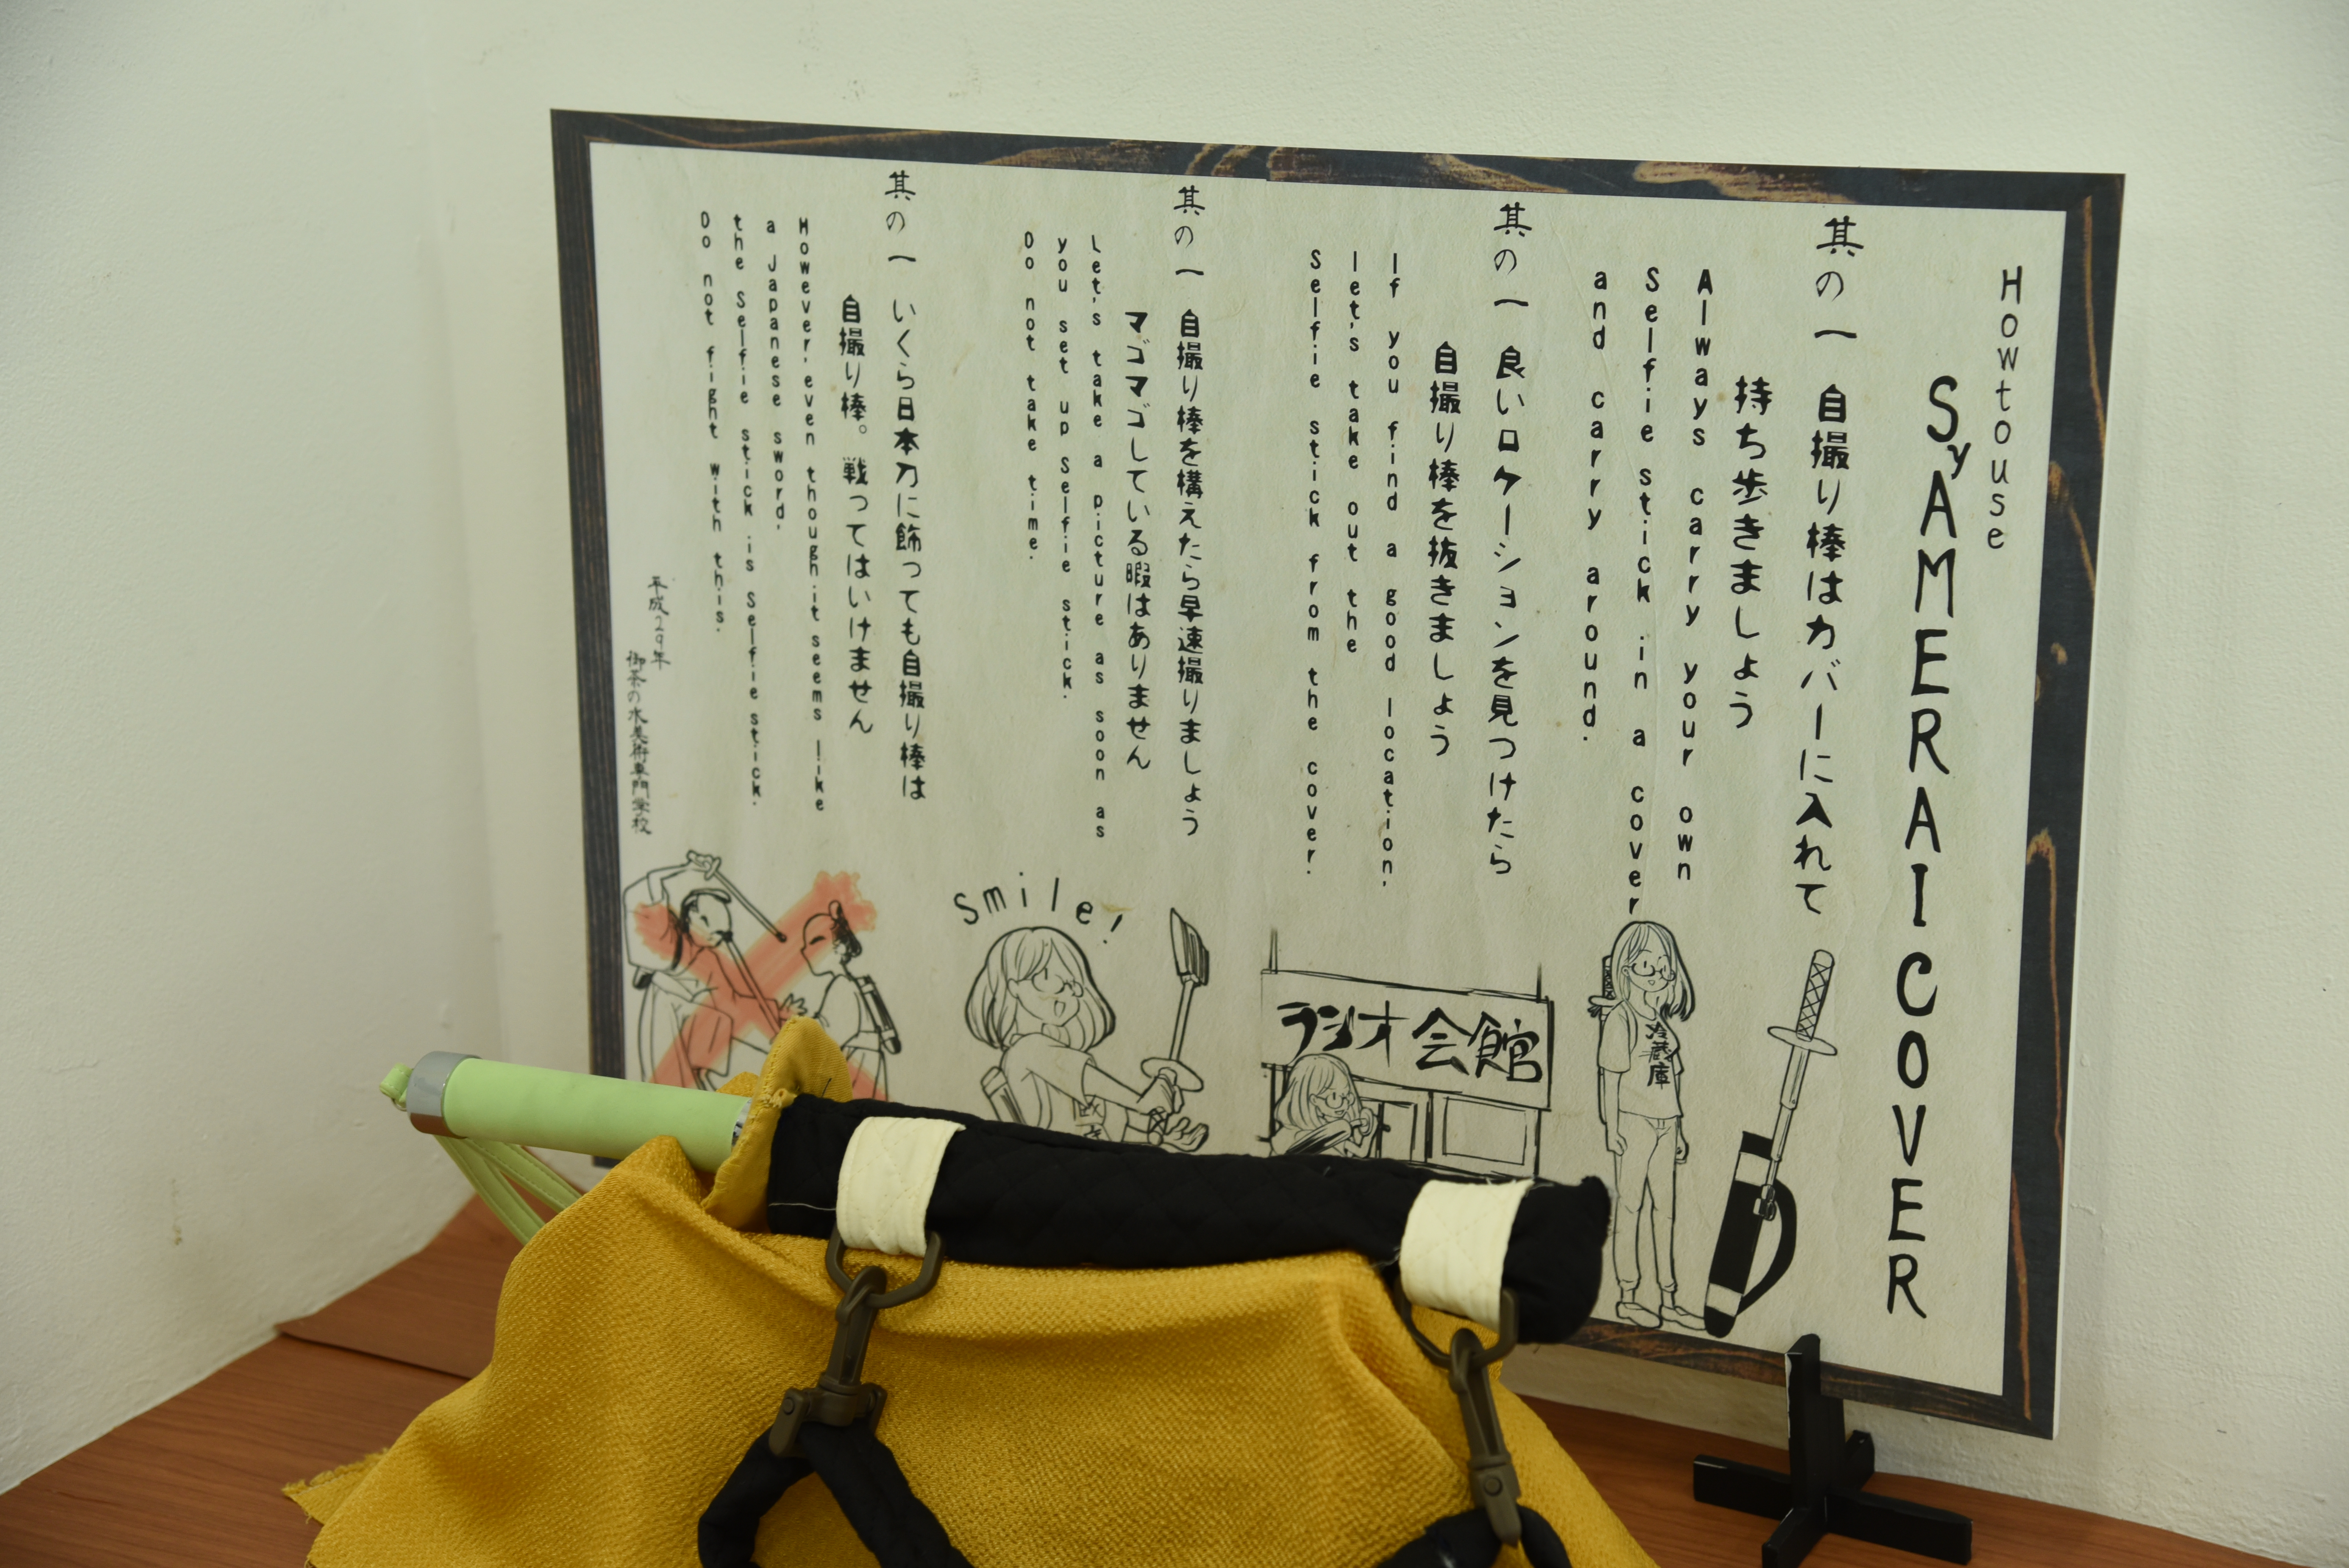 How to use
SyAMERAI COVER
其の一 自撮り棒はカバーに入れて
持ち歩きましょう
Always carry your own
Selfie stick in a cover
and carry around.
其の一 良いロケーションを見つけたら
自撮り棒を抜きましょう
If you find a good location,
let's take out the
Selfie stick from the cover.
其の一 自撮り棒を構えたら早速撮りましょう
マゴマゴしている暇はありません
Let's take a picture as soon as
you set up Selfie stick.
Do not take time.
其の一 いくら日本刀に飾っても自撮り棒は
自撮り棒。戦ってはいけません
However, even though it seems like
a Japanese sword,
the Selfie stick is Selfie stick.
Do not fight with this.
平成29年
御茶の水美術専門学校
冷蔵庫
ラジオ会館
Smile!